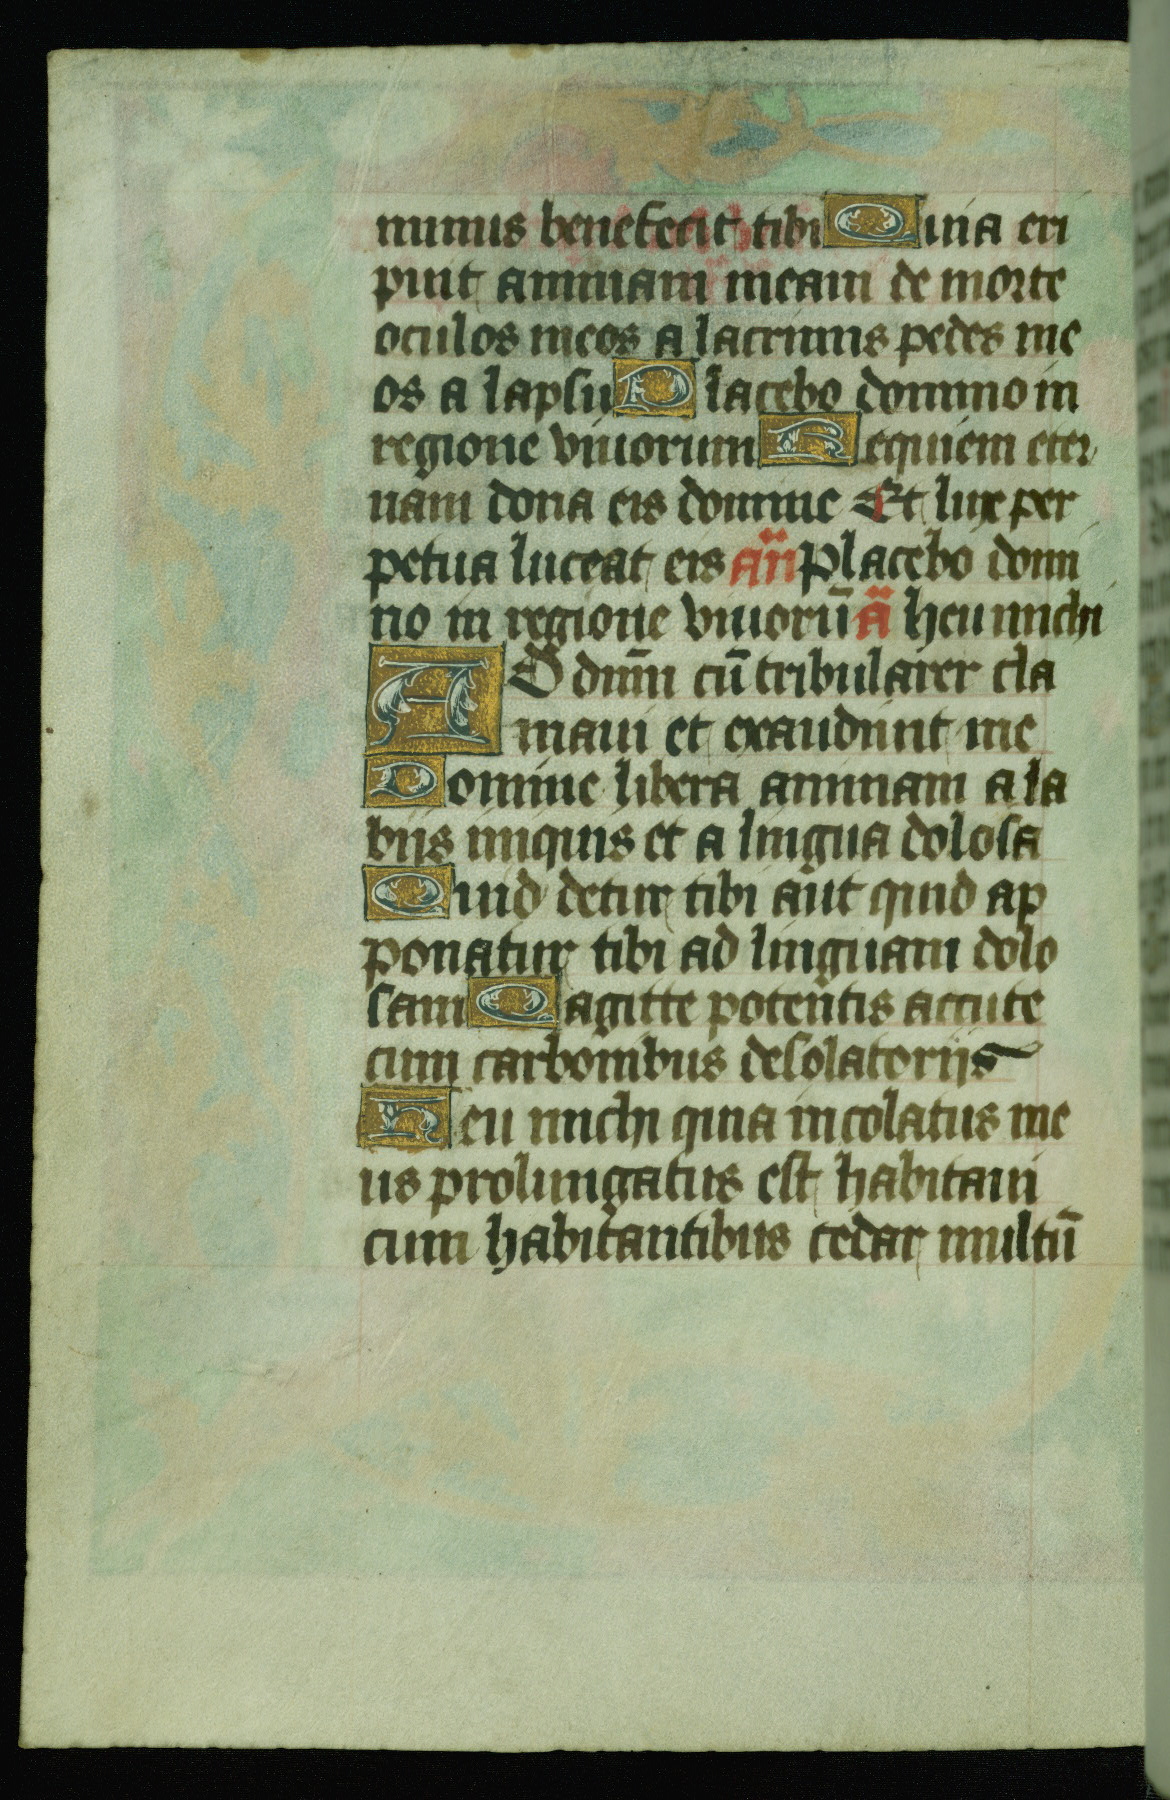 minus benefecit tibi Quia eri
puit animam meam de morte
oculos meos a lacrimis pedes me
os a lapsu Placebo domino in
regione viuorum Requiem eter
nam dona eis domine Et lux per
petua luceat eis an̄ Placebo domi
no in regione viuorū ā heu michi
AD dn̄m cū tribularer cla
maui et exaudiuit me
Domine libera animam a la
biis iniquis et a lingua dolosa
Quid detur tibi aut quid ap
ponatur tibi ad linguam dolo
sam Sagitte potentis accute
cum carbonibus desolatoriis
Heu michi quia incolatus me
us prolungatus est habitaui
cum habitantibus cedar multū